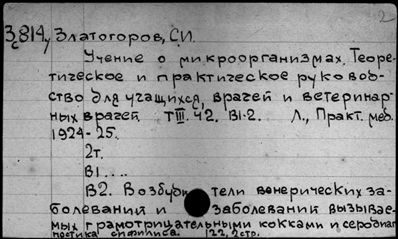 2
З814, Златогоров, С.И.
Учение о микроорганизмах. Теоре-
тическое и практическое руковод-
ство для учащихся, врачей и ветеринар-
ных врачей ТIII. Ч2. В1-2. Л., Практ. мед.
1924-25.
2т.
В1....
В2. Возбуди тели венерических за-
болеваний и заболеваний вызывае-
мых грамотрицательными кокками и серодиаг
ностика сифилиса. 122, 2стр.